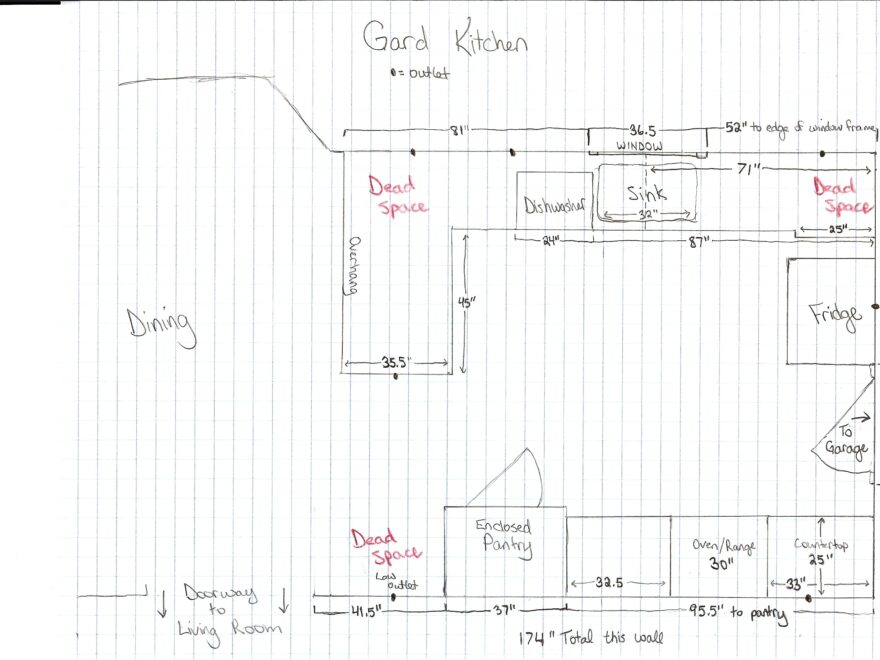 Gard Kitchen
•= outlet
81"
36.5
52" to edge of window frame
WINDOW
71"
Dead
Space
Dishwasher
Sink
32"
Dead
Space
25"
24"
87"
Overhang
45"
Dining
Fridge
35.5"
To
Garage
Enclosed
Pantry
Dead
Space
Low
outlet
Oven/Range
30"
Countertop
25"
32.5
33"
Doorway
to
Living Room
41.5"
37"
95.5" to pantry
174" Total this wall